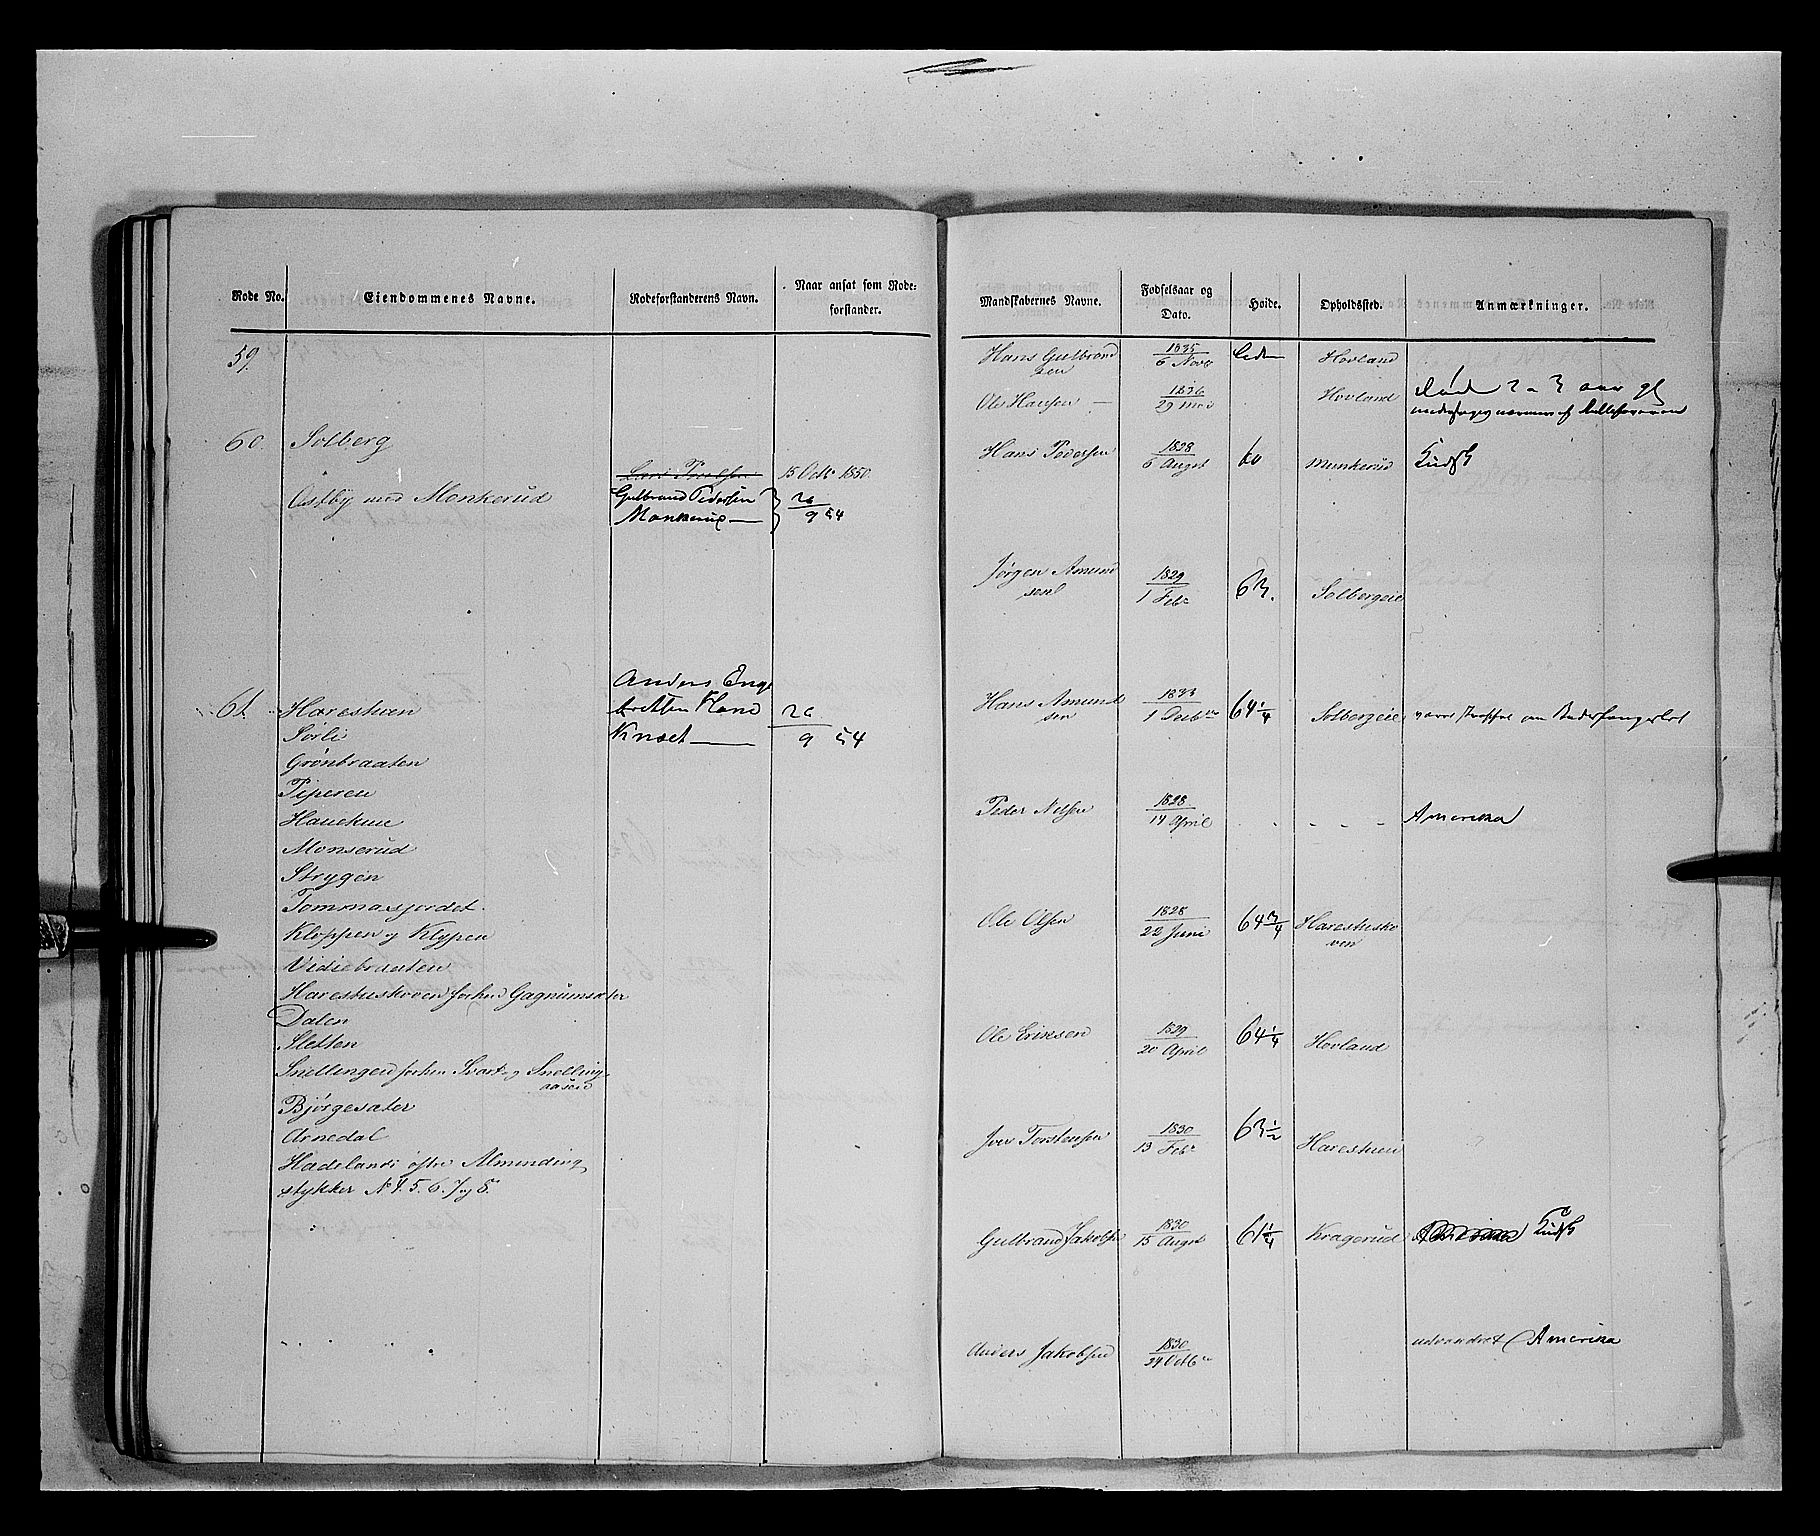 Rode No.
Eiendommenes Navne.
Rodeforstanderens Navn.
Naar ansat som Rode-
forstander.
59.
60. Solberg
15 Octb 1850.
Østby med Monkerud
Gulbrand Pedersen
Monkerud
26
9 54
61. Harestuen
Anders Enge
26
9 54
Sørli
Knæet
Grønbraaten
Piperen
Haueknue
Monserud
Strygen
Tommasjordet.
Kloppen og Klypen
Vidiebraaten
Harestuskoven forhen Gagnumsæter
Dalen
Sletten
Snellingen forhen Svart- og Snelling-
aasen
Bjørgesæter
Arnedal
Hadelands østre Almending
stykker No 4. 5. 6. 7 og 8.
Mandskabernes Navne.
Fødselsaar og
Dato.
Høide.
Opholdssted.
Anmærkninger.
Hans Gulbrand
sen
1835
6 Novb
Hovland
Ole Hansen
1836
29 Mai
Hovland
Døde 2 a 3 aar gl
Hans Pedersen
1828
6 Augst
60
Munkerud
Jørgen Amund
sen
1829
1 Febr
63.
Solbergeie
Hans Amund
sen
1833
1 Decbr
64 1/4
Solbergeie
Peder Nilsen
1828
14 April
- - -
Amerika
Ole Olsen
1828
22 Juni
64 3/4
Harestusko
ven
Ole Eriksen
1829
20 April
64 1/4
Hovland
Iver Torstensen
1830
13 Febr
63 1/2
Harestuen
Gulbrand Jakobsen
1830
15 Augst
61 1/4
Kragerud
Anders Jakobsen
1830
24 Octbr
udvandret t Amerika